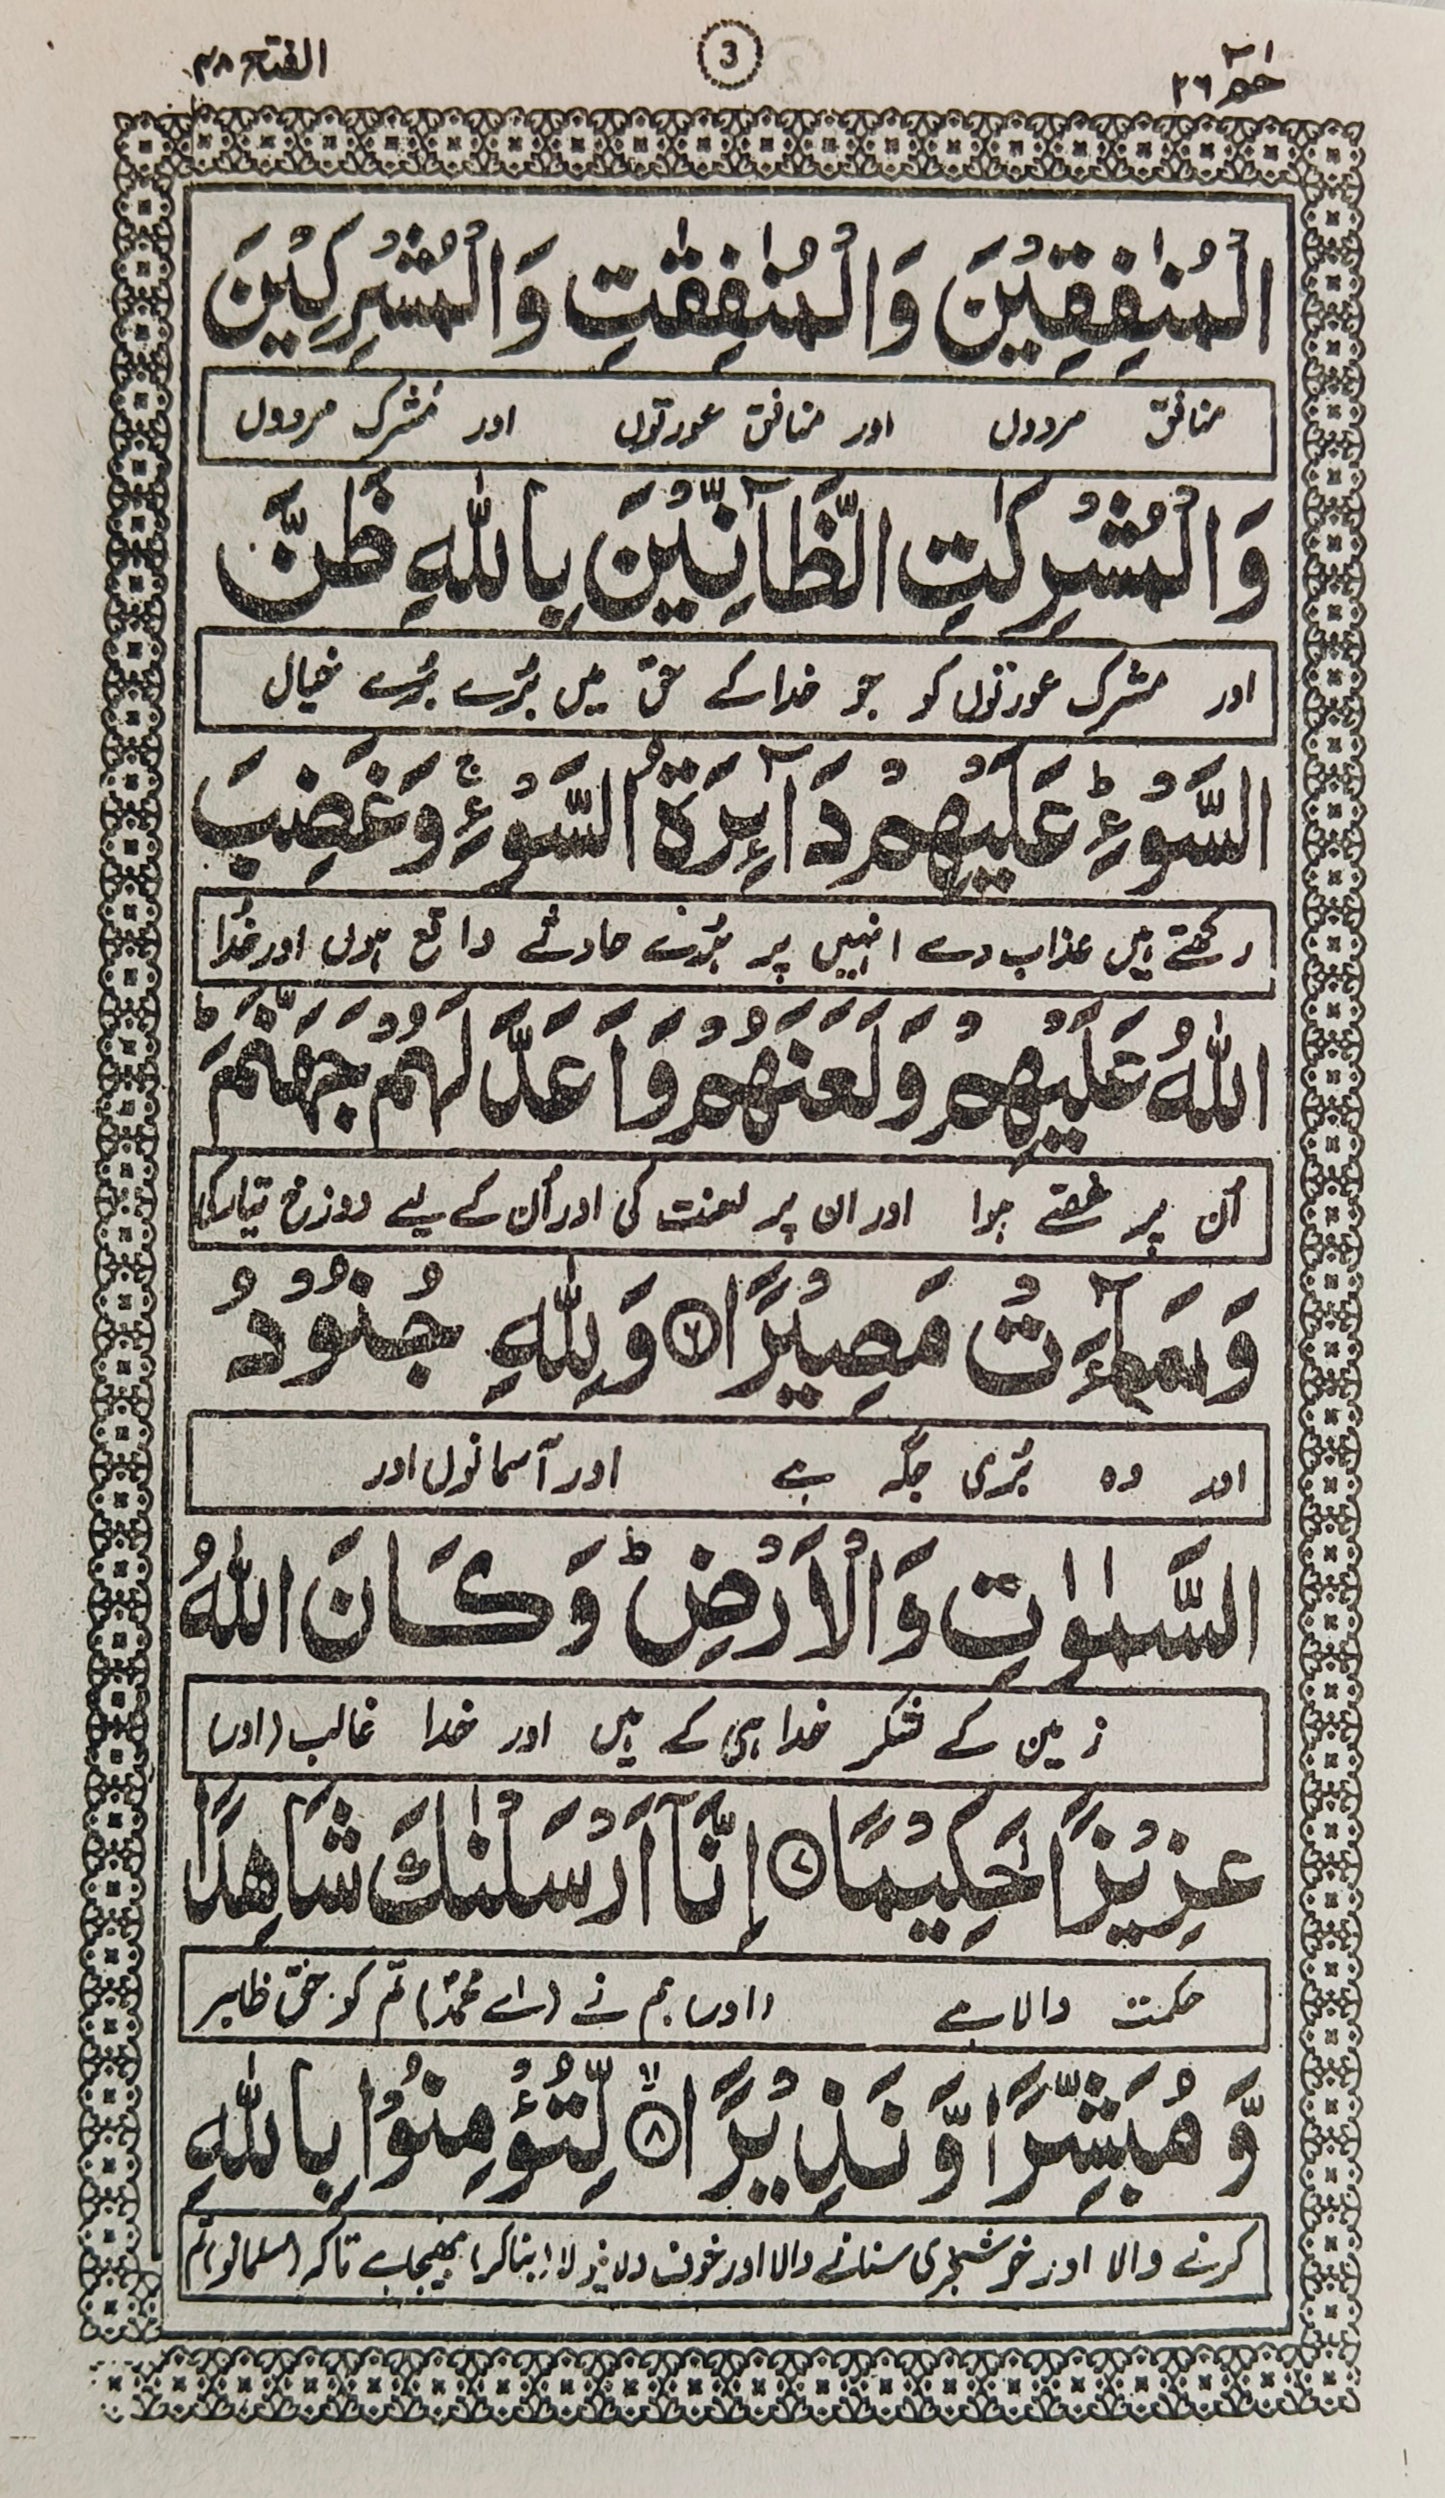 حٰمٓ ٢٦
3
الفتح ٤٨
الْمُنٰفِقِيْنَ وَالْمُنٰفِقٰتِ وَالْمُشْرِكِيْنَ
منافق مردوں اور منافق عورتوں اور مُشرک مردوں
وَالْمُشْرِكٰتِ الظَّآنِّيْنَ بِاللّٰهِ ظَنَّ
اور مشرک عورتوں کو جو خدا کے حق میں بُرے بُرے خیال
السَّوْءِ ؕ عَلَيْهِمْ دَآئِرَةُ السَّوْءِ ۚ وَغَضِبَ
رکھتے ہیں عذاب دے انہیں پر بُرے حادثے واقع ہوں اور خُدا
اللّٰهُ عَلَيْهِمْ وَلَعَنَهُمْ وَاَعَدَّ لَهُمْ جَهَنَّمَ ؕ
اُن پر غصّے ہوا اور ان پر لعنت کی اور اُن کے لیے دوزخ تیار کی
وَسَآءَتْ مَصِيْرًا ۝٦ وَلِلّٰهِ جُنُوْدُ
اور وہ بُری جگہ ہے اور آسمانوں اور
السَّمٰوٰتِ وَالْاَرْضِ ؕ وَكَانَ اللّٰهُ
زمین کے لشکر خدا ہی کے ہیں اور خدا غالب (اور)
عَزِيْزًا حَكِيْمًا ۝٧ اِنَّآ اَرْسَلْنٰكَ شَاهِدًا
حکمت والا ہے (اور) ہم نے (اے محمدؐ) تم کو حق ظاہر
وَّمُبَشِّرًا وَّنَذِيْرًا ۝٨ لِّتُؤْمِنُوْا بِاللّٰهِ
کرنے والا اور خوشخبری سنانے والا اور خوف دلانیوالا (بنا کر) بھیجا ہے تاکہ (مسلمانو) تم